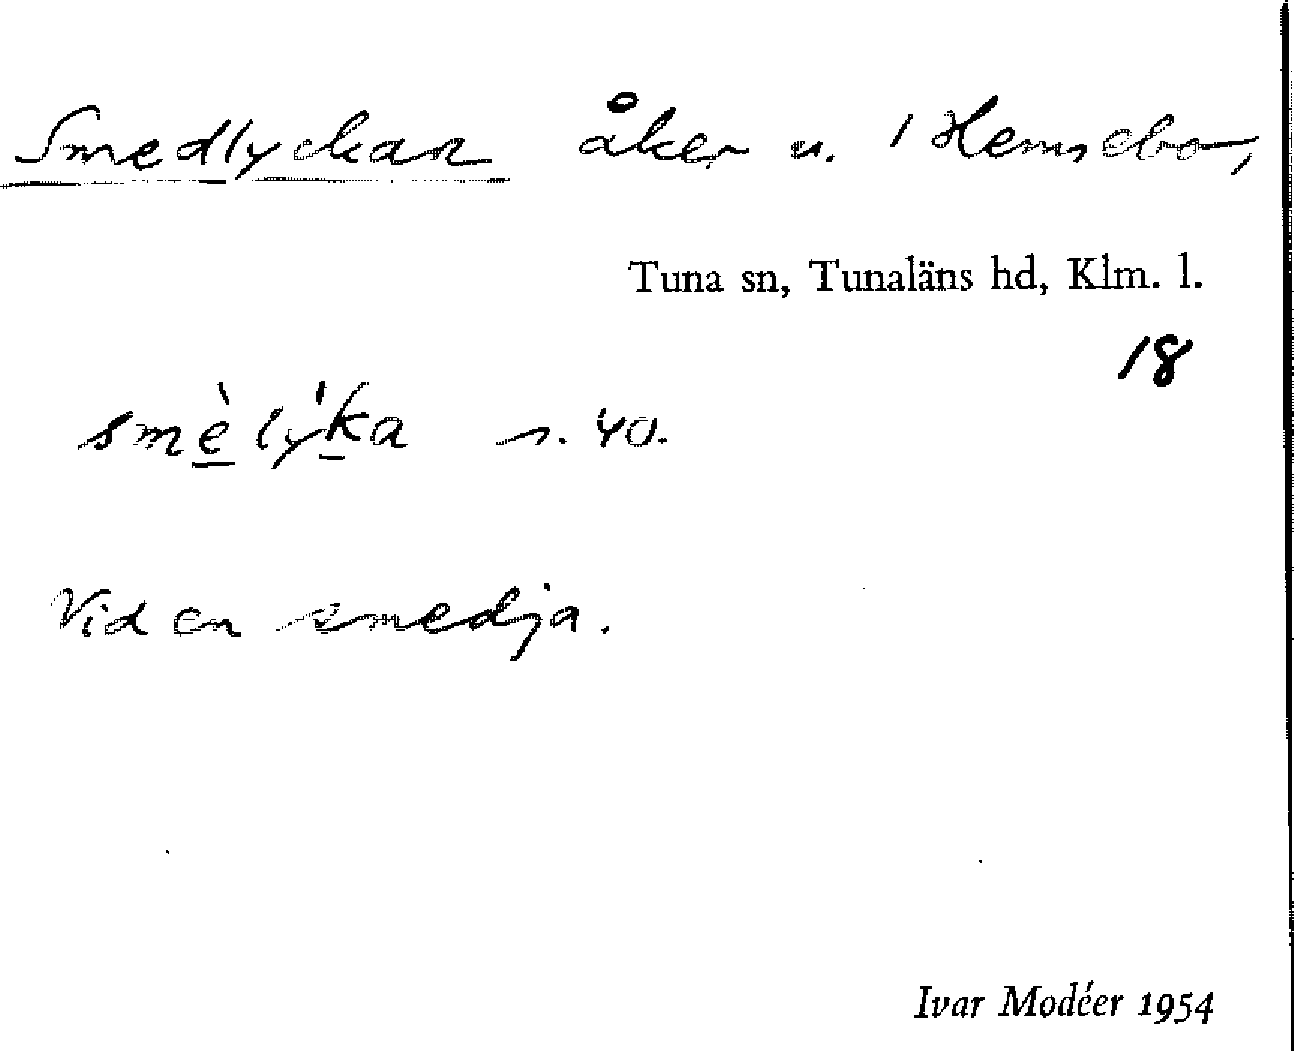 Smedlyckan åker u. 1 Hemsebo,
Tuna sn, Tunaläns hd, Klm. l.
18
smèlýka s. 40.
Vid en smedja.
Ivar Modéer 1954